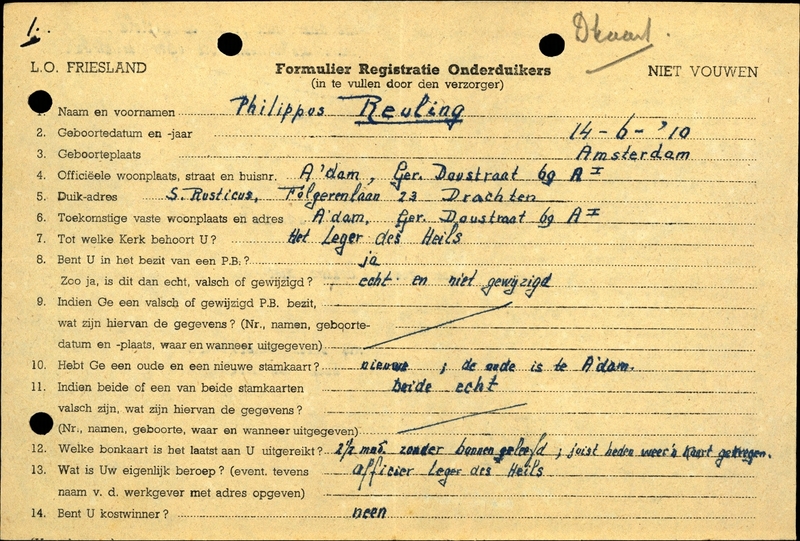 1.
Dkaart.
L.O. FRIESLAND
Formulier Registratie Onderduikers
NIET VOUWEN
(in te vullen door den verzorger)
1. Naam en voornamen Philippus Reuling
2. Geboortedatum en -jaar 14-6-'10
3. Geboorteplaats Amsterdam
4. Officiëele woonplaats, straat en huisnr. A'dam, Ger. Doustraat 69 A I
5. Duik-adres S. Rusticus, Folgerenlaan 23 Drachten
6. Toekomstige vaste woonplaats en adres A'dam, Ger. Doustraat 69 A I
7. Tot welke Kerk behoort U? Het Leger des Heils
8. Bent U in het bezit van een P.B.? ja
Zoo ja, is dit dan echt, valsch of gewijzigd? echt en niet gewijzigd
9. Indien Ge een valsch of gewijzigd P.B. bezit,
wat zijn hiervan de gegevens? (Nr., namen, geboorte-
datum en -plaats, waar en wanneer uitgegeven)
10. Hebt Ge een oude en een nieuwe stamkaart? nieuwe ; de oude is te A'dam.
11. Indien beide of een van beide stamkaarten beide echt
valsch zijn, wat zijn hiervan de gegevens?
(Nr., namen, geboorte, waar en wanneer uitgegeven)
12. Welke bonkaart is het laatst aan U uitgereikt? 2½ mnd. zonder bonnen geleefd ; juist heden weer 'n kaart gekregen.
13. Wat is Uw eigenlijk beroep? (event. tevens officier Leger des Heils
naam v. d. werkgever met adres opgeven)
14. Bent U kostwinner? neen